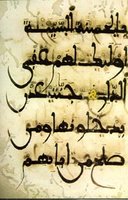 بالحسنة السيئة
أولئك لهم عقبى
الدار جنت عدن
يدخلونها ومن
صلح من ابائهم